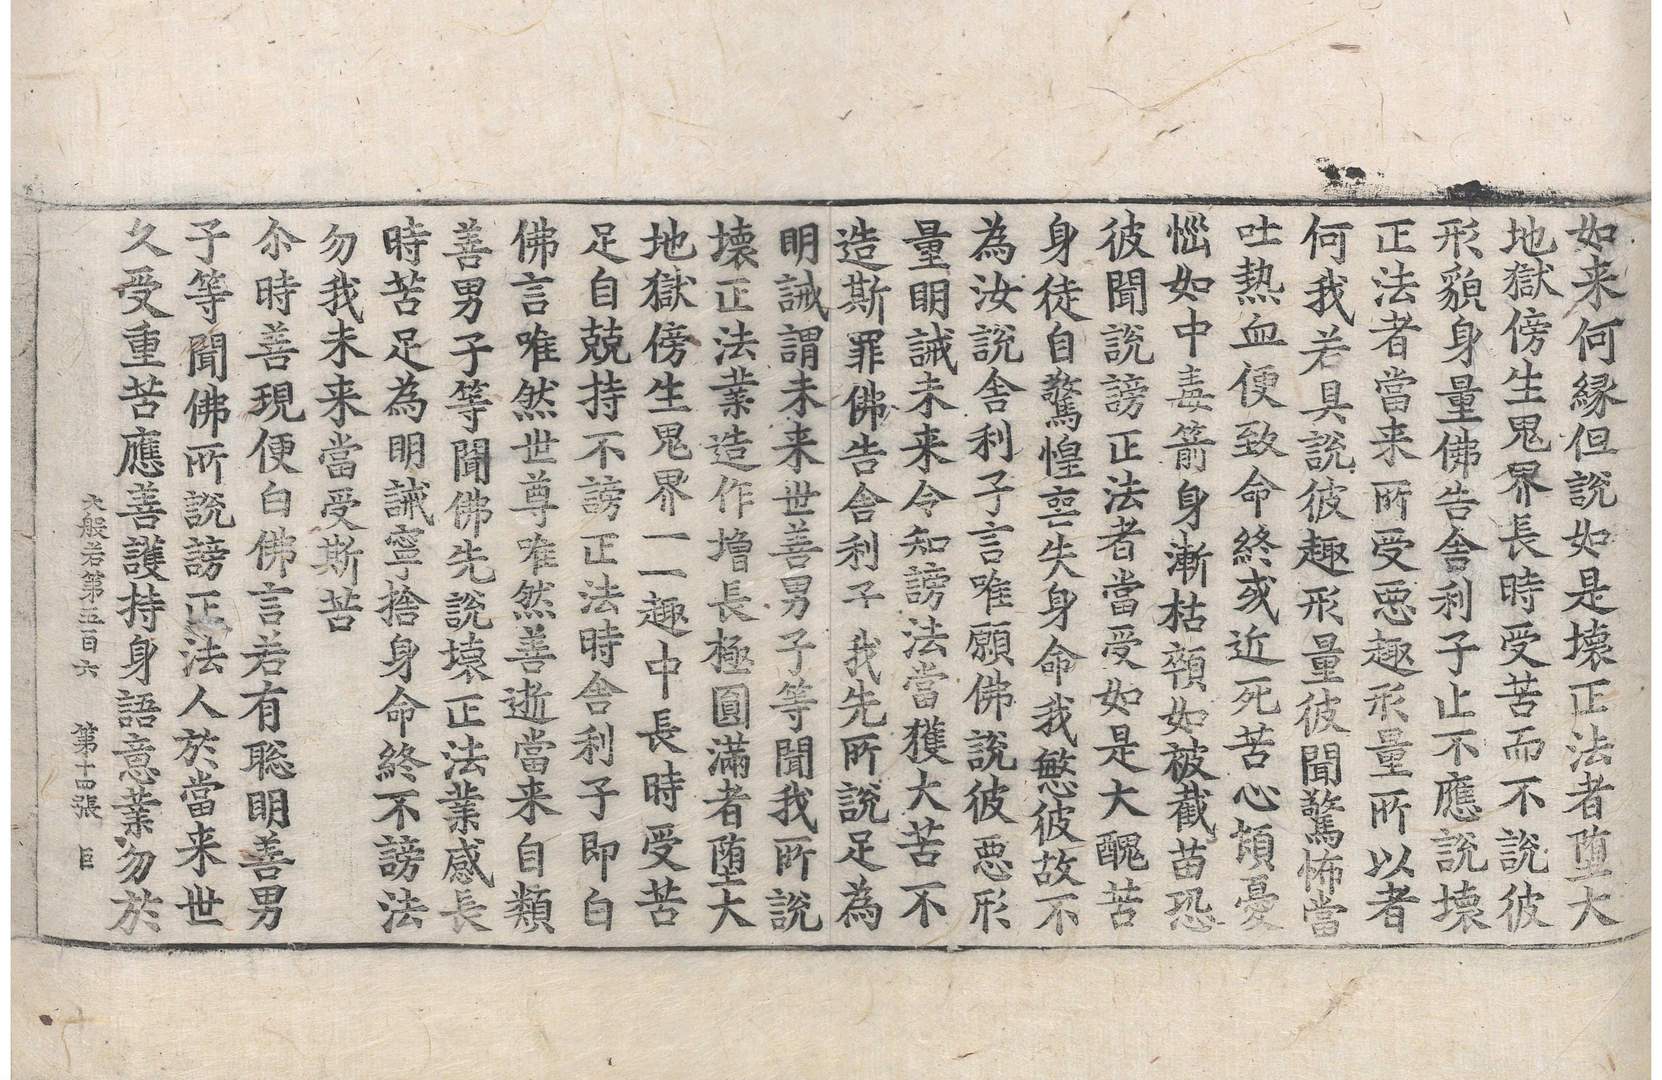 如来何縁但說如是壞正法者堕大
地獄傍生鬼界長時受苦而不說彼
形貌身量佛告舍利子止不應說壞
正法者當来所受惡趣形量所以者
何我若具說彼趣形量彼聞驚怖當
吐热血便致命終或近死苦心頓憂
惱如中毒箭身漸枯顇如被截苗恐
彼聞說謗正法者當受如是大醜苦
身徒自驚惶䘮失身命我愍彼故不
為汝說舍利子言唯願佛說彼惡形
量明誡未来令知謗法當獲大苦不
造斯罪佛告舍利子我先所說足為
明誡謂未来世善男子等聞我所說
壞正法業造作增長極圓滿者堕大
地獄傍生鬼界一一趣中長時受苦
足自兢持不謗正法時舍利子即白
佛言唯然世尊唯然善逝當来自類
善男子等聞佛先說壞正法業感長
時苦足為明誡寧捨身命終不謗法
勿我未来當受斯苦
尒時善現便白佛言若有聡明善男
子等聞佛所說謗正法人於當来世
久受重苦應善護持身語意業勿於
大般若第五百六　第十四張　巨